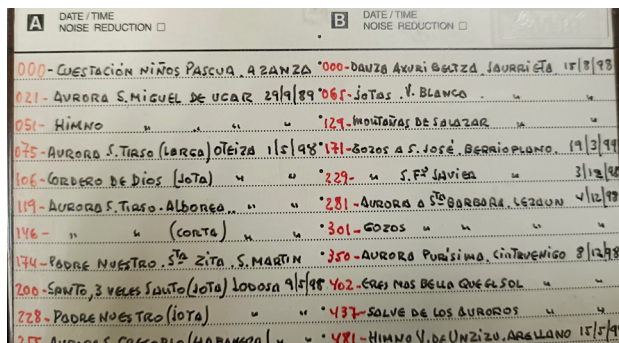 A DATE / TIME NOISE REDUCTION
B DATE / TIME NOISE REDUCTION
000-CUESTACIÓN NIÑOS PASCUA. AZANZA
021-AURORA S. MIGUEL DE UGAR 29/9/89
051-HIMNO " " " "
075-AURORA S. TIRSO (LARGA) OTEIZA 1/5/98
106-CORDERO DE DIOS (JOTA) " "
119-AURORA S. TIRSO. ALBOREA " "
146- " " (CORTA) " "
174-PADRE NUESTRO. STA ZITA. S. MARTIN
200-SANTO, 3 VECES SANTO (JOTA) LODOSA 9/5/98
228-PADRE NUESTRO (JOTA) " "
000-DANZA AXURI BELTZA. JAURRIETA 15/8/98
065-JOTAS. V. BLANCA. " "
129-MONTAÑAS DE SALAZAR " "
171-GOZOS A S. JOSÉ. BERRIOPLANO. 19/3/99
229- " S. FCO JAVIER " 3/12/98
281-AURORA A STA BARBARA. LEZAUN 4/12/98
301-GOZOS " " " "
350-AURORA PURÍSIMA. CINTRUENIGO 8/12/98
402-ERES MAS BELLA QUE EL SOL " "
437-SALVE DE LOS AUROROS " "
481-HIMNO V. DE UNZIZU. ARELLANO 15/5/9